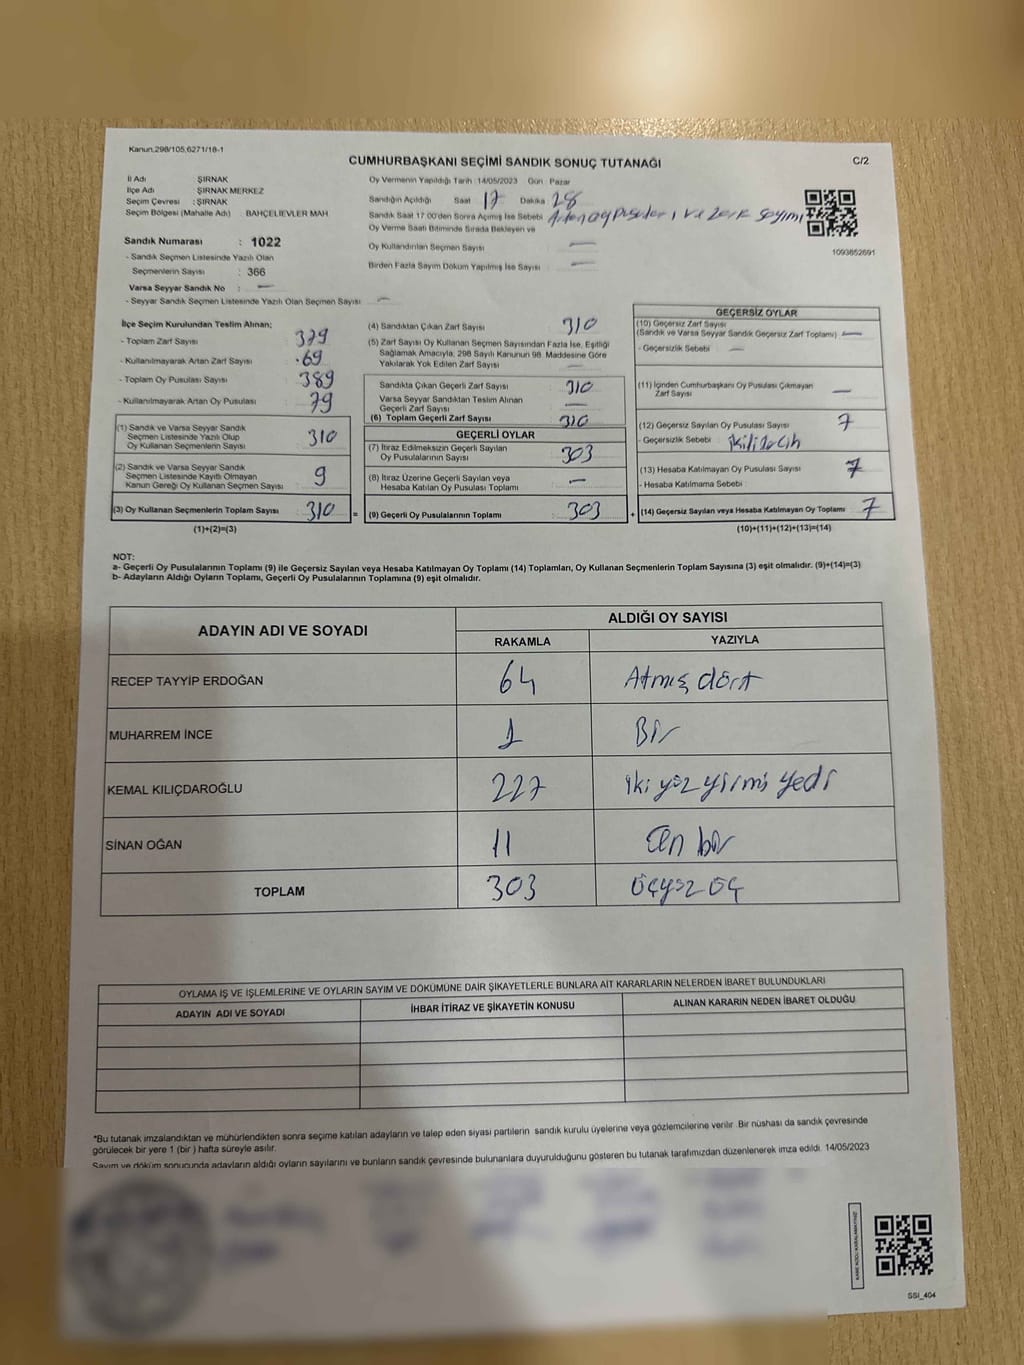 Kanun.298/105,6271/18-1
CUMHURBAŞKANI SEÇİMİ SANDIK SONUÇ TUTANAĞI
C/2
İl Adı ŞIRNAK
İlçe Adı ŞIRNAK MERKEZ
Seçim Çevresi : ŞIRNAK
Seçim Bölgesi (Mahalle Adı) : BAHÇELİEVLER MAH
Oy Vermenin Yapıldığı Tarih : 14/05/2023 Gün : Pazar
Sandığın Açıldığı Saat 17 Dakika 28
Sandık Saat 17:00'den Sonra Açılmış İse Sebebi Artan oy pusuları ve zarf sayımı
Oy Verme Saati Bitiminde Sırada Bekleyen ve
Oy Kullandırılan Seçmen Sayısı —
Birden Fazla Sayım Döküm Yapılmış İse Sayısı —
1093652691
Sandık Numarası : 1022
- Sandık Seçmen Listesinde Yazılı Olan
Seçmenlerin Sayısı : 366
Varsa Seyyar Sandık No : —
- Seyyar Sandık Seçmen Listesinde Yazılı Olan Seçmen Sayısı : —
İlçe Seçim Kurulundan Teslim Alınan;
- Toplam Zarf Sayısı : 379
- Kullanılmayarak Artan Zarf Sayısı : 69
- Toplam Oy Pusulası Sayısı : 389
- Kullanılmayarak Artan Oy Pusulası : 79
(1) Sandık ve Varsa Seyyar Sandık
Seçmen Listesinde Yazılı Olup
Oy Kullanan Seçmenlerin Sayısı 310
(2) Sandık ve Varsa Seyyar Sandık
Seçmen Listesinde Kayıtlı Olmayan
Kanun Gereği Oy Kullanan Seçmen Sayısı 9
(3) Oy Kullanan Seçmenlerin Toplam Sayısı 310
(1)+(2)=(3)
(4) Sandıktan Çıkan Zarf Sayısı 310
(5) Zarf Sayısı Oy Kullanan Seçmen Sayısından Fazla İse, Eşitliği
Sağlamak Amacıyla, 298 Sayılı Kanunun 98. Maddesine Göre
Yakılarak Yok Edilen Zarf Sayısı —
Sandıkta Çıkan Geçerli Zarf Sayısı 310
Varsa Seyyar Sandıktan Teslim Alınan
Geçerli Zarf Sayısı —
(6) Toplam Geçerli Zarf Sayısı 310
GEÇERLİ OYLAR
(7) İtiraz Edilmeksizin Geçerli Sayılan
Oy Pusulalarının Sayısı 303
(8) İtiraz Üzerine Geçerli Sayılan veya
Hesaba Katılan Oy Pusulası Toplamı —
= (9) Geçerli Oy Pusulalarının Toplamı 303
GEÇERSİZ OYLAR
(10) Geçersiz Zarf Sayısı
(Sandık ve Varsa Seyyar Sandık Geçersiz Zarf Toplamı) —
- Geçersizlik Sebebi : —
(11) İçinden Cumhurbaşkanı Oy Pusulası Çıkmayan
Zarf Sayısı —
(12) Geçersiz Sayılan Oy Pusulası Sayısı 7
- Geçersizlik Sebebi :
(13) Hesaba Katılmayan Oy Pusulası Sayısı 7
- Hesaba Katılmama Sebebi :
+ (14) Geçersiz Sayılan veya Hesaba Katılmayan Oy Toplamı 7
(10)+(11)+(12)+(13)=(14)
NOT:
a- Geçerli Oy Pusulalarının Toplamı (9) ile Geçersiz Sayılan veya Hesaba Katılmayan Oy Toplamı (14) Toplamları, Oy Kullanan Seçmenlerin Toplam Sayısına (3) eşit olmalıdır. (9)+(14)=(3)
b- Adayların Aldığı Oyların Toplamı, Geçerli Oy Pusulalarının Toplamına (9) eşit olmalıdır.
ADAYIN ADI VE SOYADI
ALDIĞI OY SAYISI
RAKAMLA YAZIYLA
RECEP TAYYİP ERDOĞAN 64 Atmış dört
MUHARREM İNCE 1 Bir
KEMAL KILIÇDAROĞLU 227 iki yüz yirmi yedi
SİNAN OĞAN 11 On bir
TOPLAM 303 üçyüz üç
OYLAMA İŞ VE İŞLEMLERİNE VE OYLARIN SAYIM VE DÖKÜMÜNE DAİR ŞİKAYETLERLE BUNLARA AİT KARARLARIN NELERDEN İBARET BULUNDUKLARI
ADAYIN ADI VE SOYADI İHBAR İTİRAZ VE ŞİKAYETİN KONUSU ALINAN KARARIN NEDEN İBARET OLDUĞU
*Bu tutanak imzalandıktan ve mühürlendikten sonra seçime katılan adayların ve talep eden siyasi partilerin sandık kurulu üyelerine veya gözlemcilerine verilir. Bir nüshası da sandık çevresinde
görülecek bir yere 1 (bir ) hafta süreyle asılır.
Sayım ve döküm sonucunda adayların aldığı oyların sayılarını ve bunların sandık çevresinde bulunanlara duyurulduğunu gösteren bu tutanak tarafımızdan düzenlenerek imza edildi. 14/05/2023
KARE KODU KARALAMAYINIZ!
SSI_404